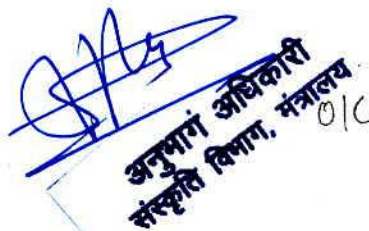 अनुभाग अधिकारी
संस्कृति विभाग, मंत्रालय
O/C